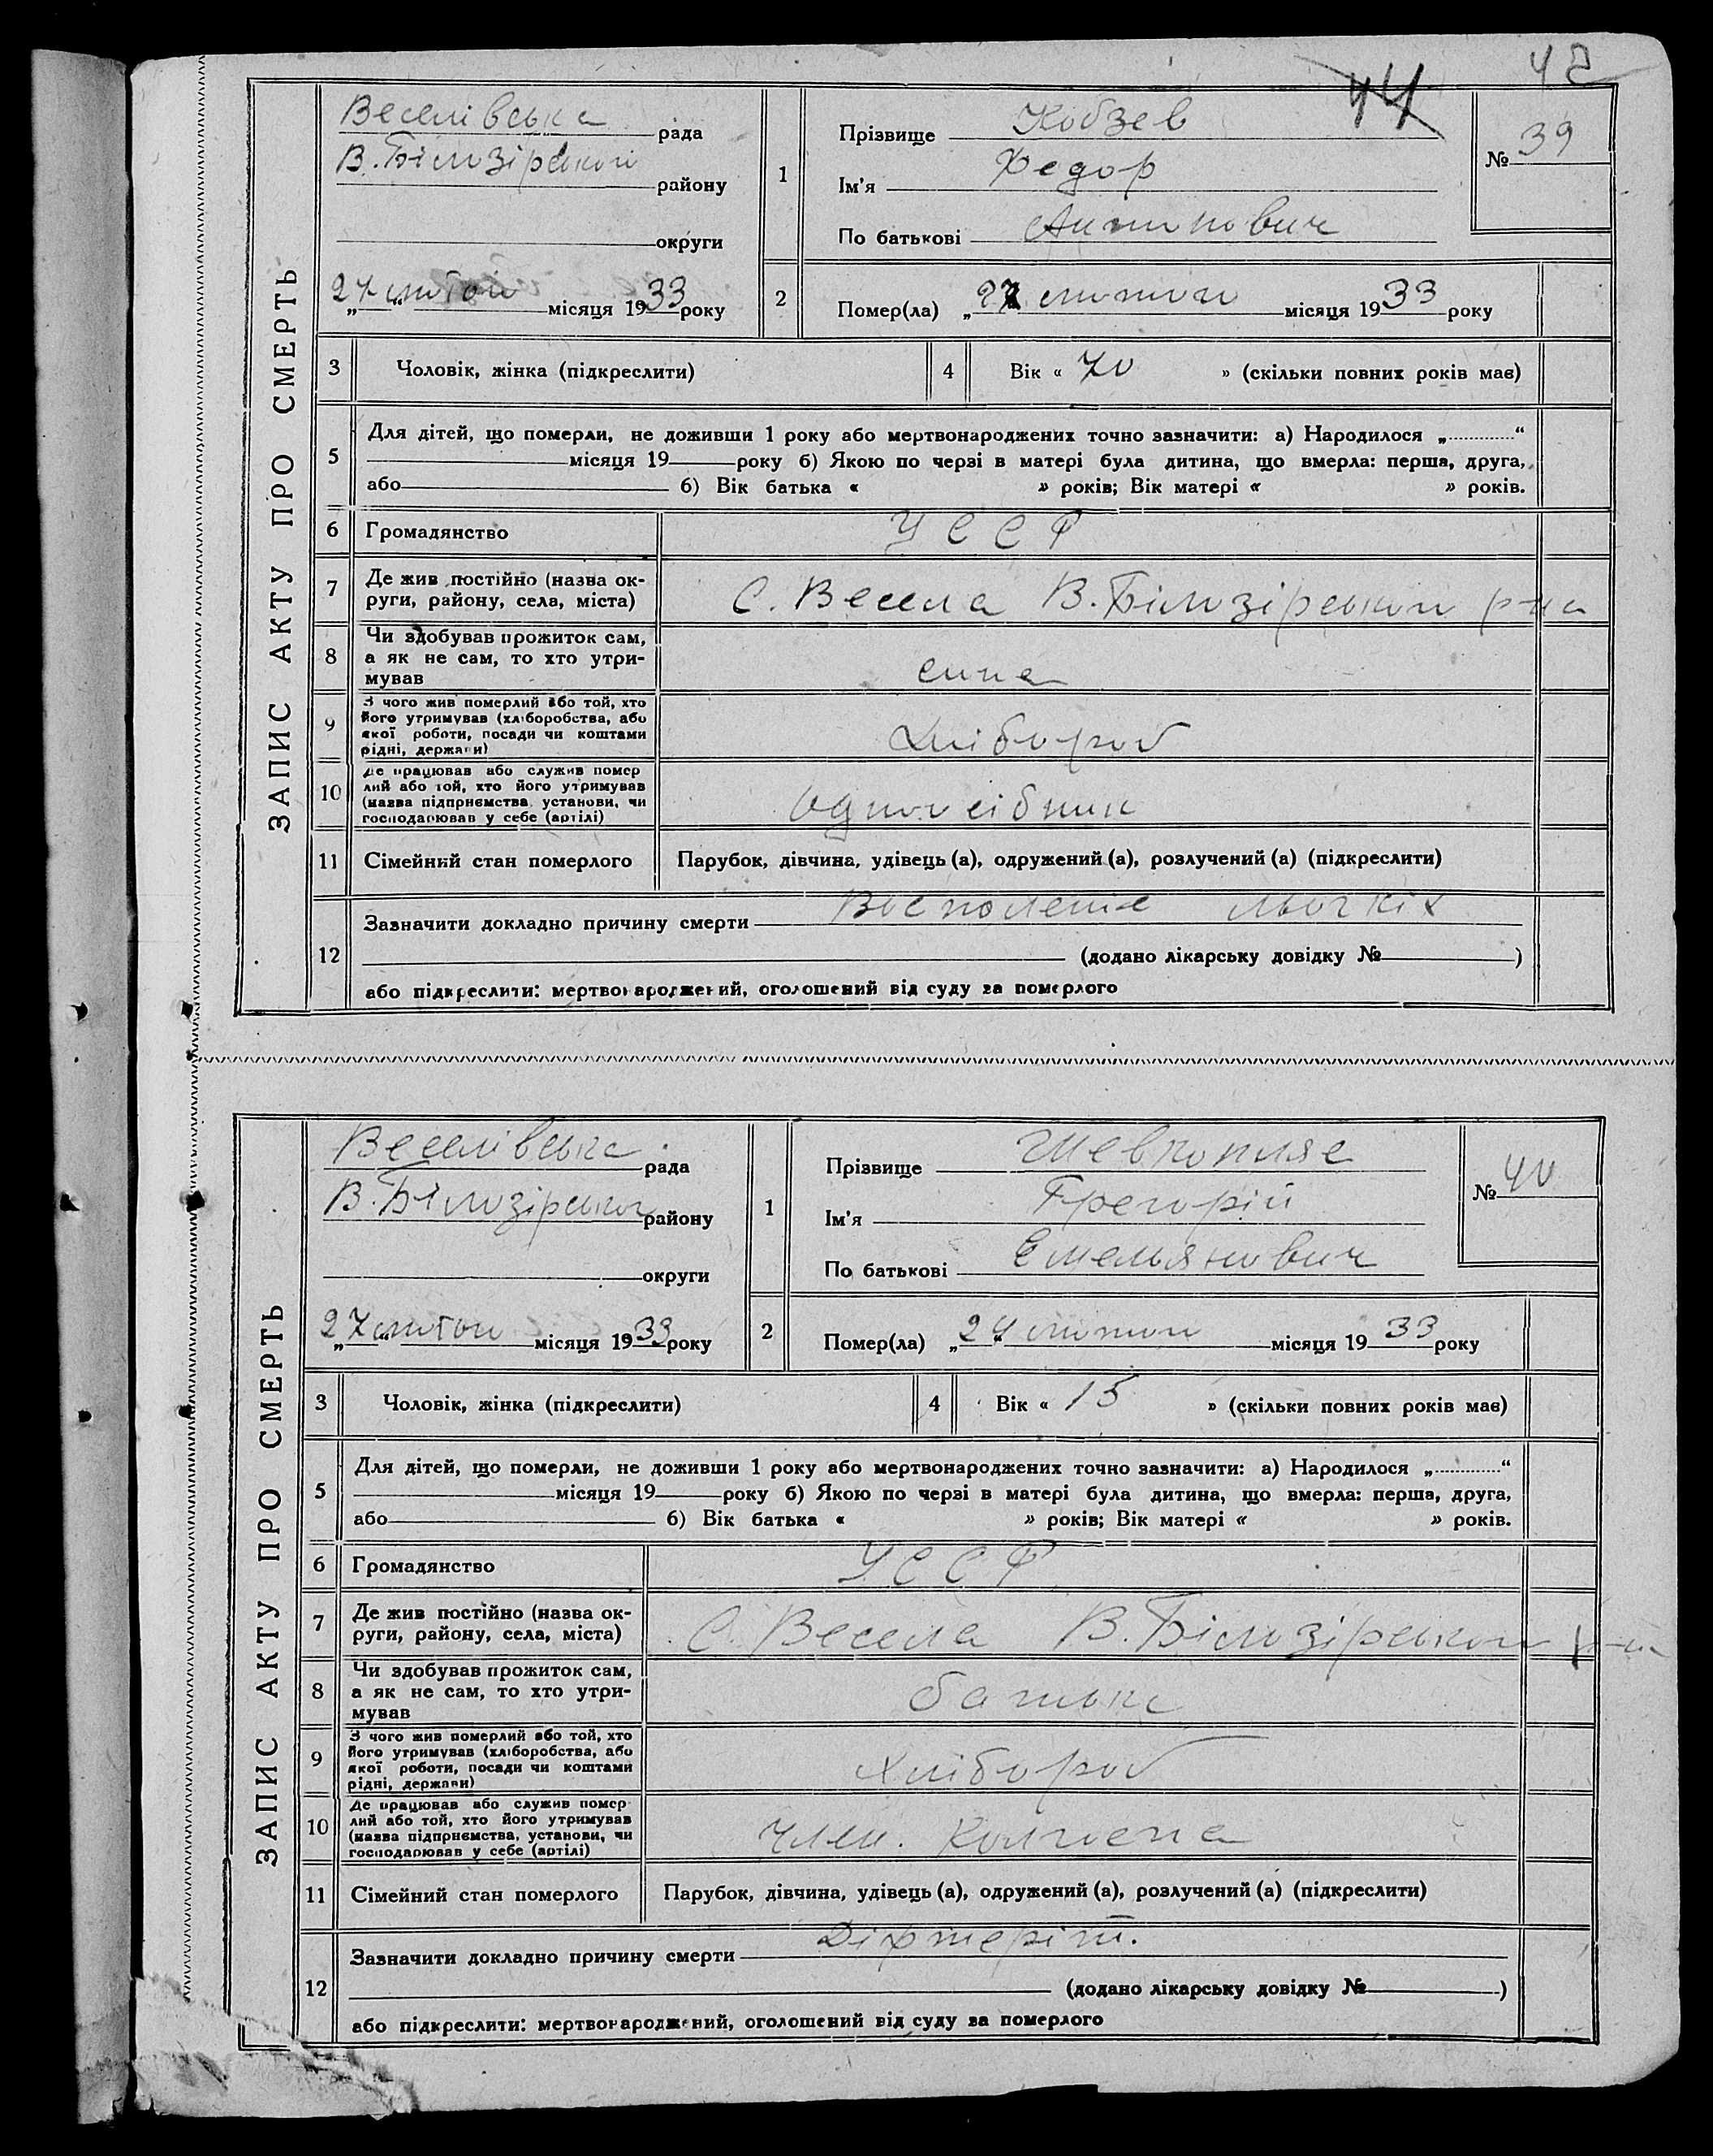 42
44
ЗАПИС АКТУ ПРО СМЕРТЬ
Веселівська рада
В. Білозірської району
округи
„27“ лютого місяця 1933 року
1
Прізвище Кобзев
Ім'я Федор
По батькові Антонович
№ 39
2
Помер(ла) „27 лютого місяця 1933 року
3
Чоловік, жінка (підкреслити)
4
Вік « 70 » (скільки повних років має)
5
Для дітей, що померли, не доживши 1 року або мертвонароджених точно зазначити: а) Народилося „ “
місяця 19 року б) Якою по черзі в матері була дитина, що вмерла: перша, друга,
або б) Вік батька « » років; Вік матері « » років.
6
Громадянство
УССР
7
Де жив постійно (назва ок-
руги, району, села, міста)
С. Весела В. Білозірського р-на
8
Чи здобував прожиток сам,
а як не сам, то хто утри-
мував
сина
9
З чого жив померлий або той, хто
його утримував (хліборобства, або
якої роботи, посади чи коштами
рідні, держави)
Хлібороб
10
Де працював або служив помер
лий або той, хто його утримував
(назва підприємства установи, чи
господарював у себе (артілі)
одноосібник
11
Сімейний стан померлого
Парубок, дівчина, удівець (а), одружений (а), розлучений (а) (підкреслити)
12
Зазначити докладно причину смерти Восполеніе льогкіх
(додано лікарську довідку № )
або підкреслити: мертвонароджений, оголошений від суду за померлого
ЗАПИС АКТУ ПРО СМЕРТЬ
Веселівська рада
В. Білозірського району
округи
„27“ лютого місяця 1933 року
1
Прізвище Шевкопляс
Ім'я Грегорій
По батькові Емельянович
№ 40
2
Помер(ла) „27“ лютого місяця 1933 року
3
Чоловік, жінка (підкреслити)
4
Вік « 15 » (скільки повних років має)
5
Для дітей, що померли, не доживши 1 року або мертвонароджених точно зазначити: а) Народилося „ “
місяця 19 року б) Якою по черзі в матері була дитина, що вмерла: перша, друга,
або б) Вік батька « » років; Вік матері « » років.
6
Громадянство
УССР
7
Де жив постійно (назва ок-
руги, району, села, міста)
С. Весела В. Білозірського р-на
8
Чи здобував прожиток сам,
а як не сам, то хто утри-
мував
батька
9
З чого жив померлий або той, хто
його утримував (хліборобства, або
якої роботи, посади чи коштами
рідні, держави)
хлібороб
10
Де працював або служив помер
лий або той, хто його утримував
(назва підприємства, установи, чи
господарював у себе (артілі)
член. Колгоспа
11
Сімейний стан померлого
Парубок, дівчина, удівець (а), одружений (а), розлучений (а) (підкреслити)
12
Зазначити докладно причину смерти Діфтеріт.
(додано лікарську довідку № )
або підкреслити: мертвонароджений, оголошений від суду за померлого